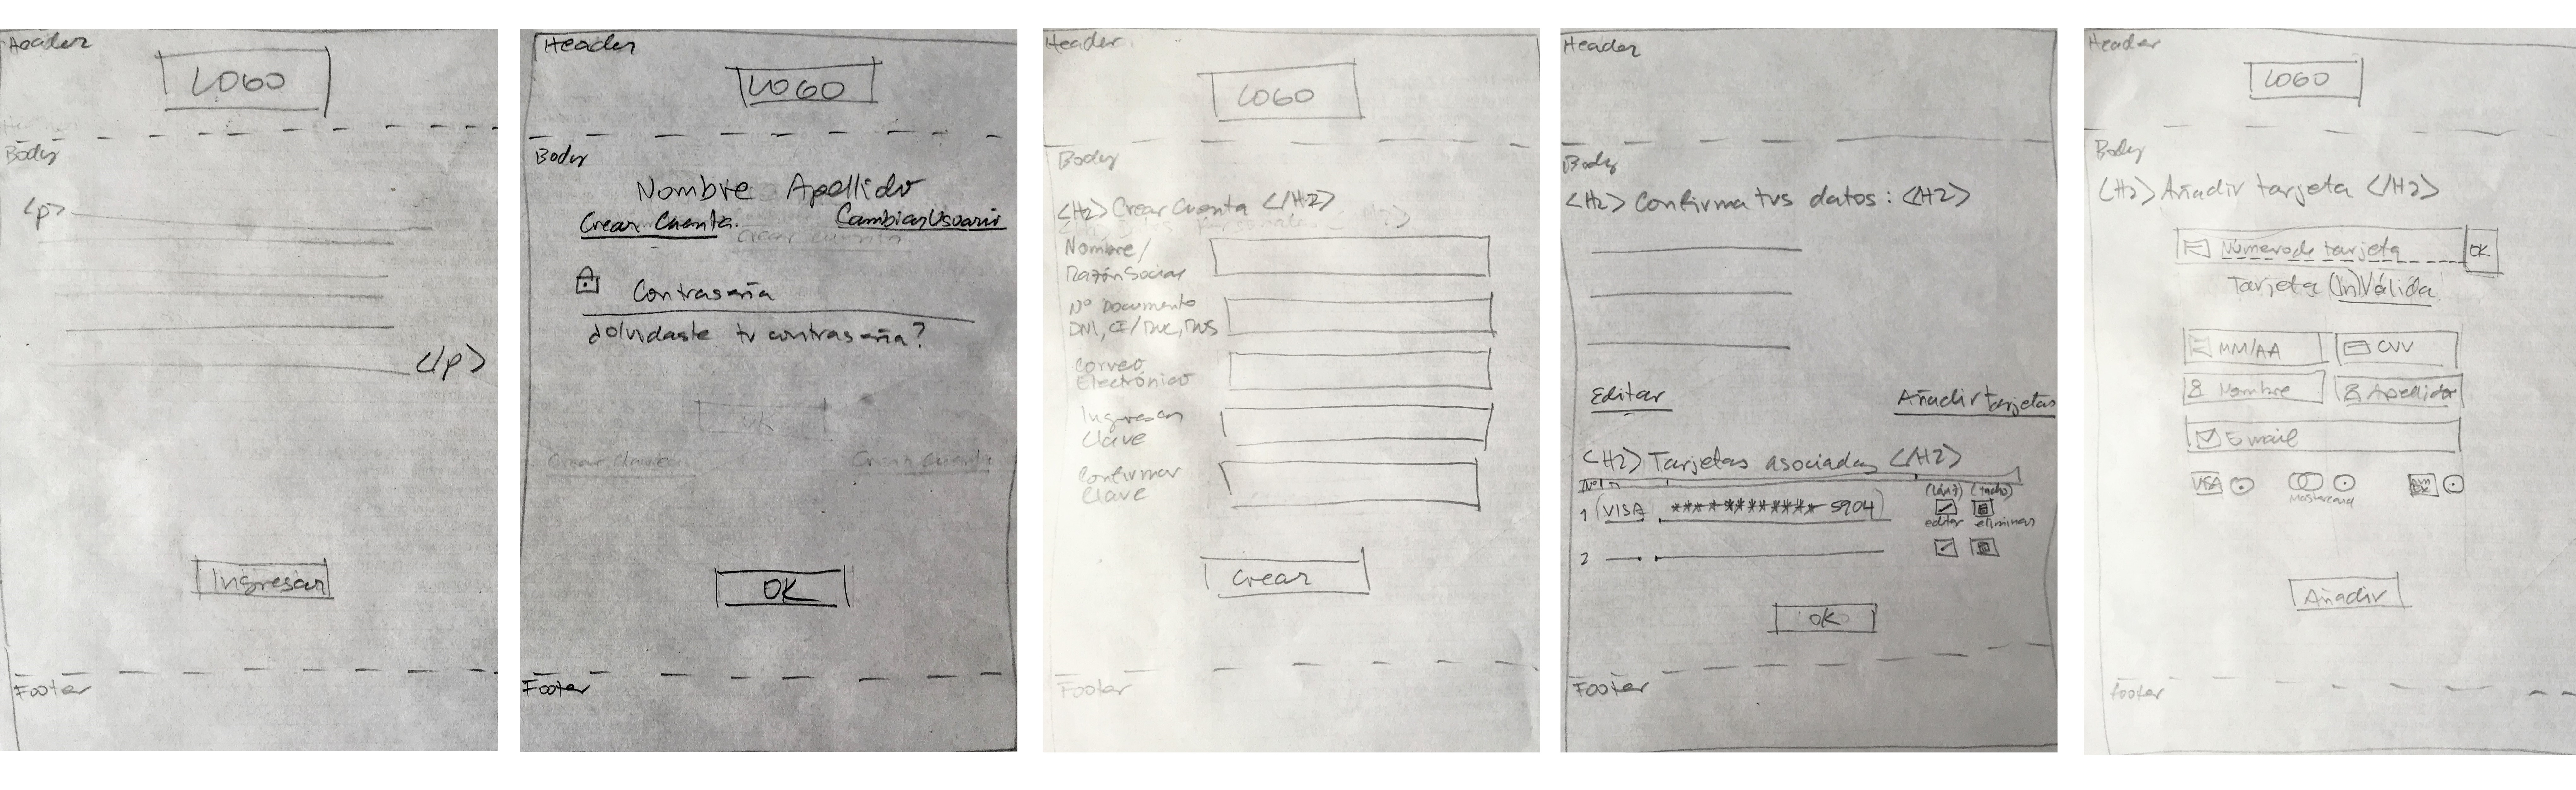 Header
LOGO
Body
<p>
</p>
Ingresar
Footer
Header
LOGO
Body
Nombre Apellido
Crear Cuenta
Cambiar Usuario
Contraseña
¿Olvidaste tu contraseña?
OK
Crear Clave
Crear Cuenta
OK
Footer
Header
LOGO
Body
<H2> Crear Cuenta </H2>
Nombre/
Razón Social
N° Documento
DNI, CE/RUC, RUS
Correo
Electrónico
Ingresar
Clave
Confirmar
Clave
Crear
Footer
Header
Body
<H2> Confirma tus datos: <H2>
Editar
Añadir tarjetas
<H2> Tarjetas asociadas </H2>
N°
(lápiz) (tacho)
1 (VISA ************ 5904)
editar eliminar
2
OK
Footer
Header
LOGO
Body
<H2> Añadir tarjeta </H2>
Número de tarjeta OK
Tarjeta (In)Válida
MM/AA CVV
Nombre Apellido
Email
VISA
Mastercard
Añadir
Footer